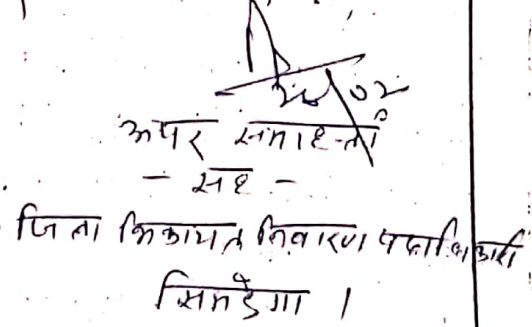 28/02
अपर समाहर्त्ता
- सह -
जिला शिकायत निवारण पदाधिकारी
सिमडेगा ।